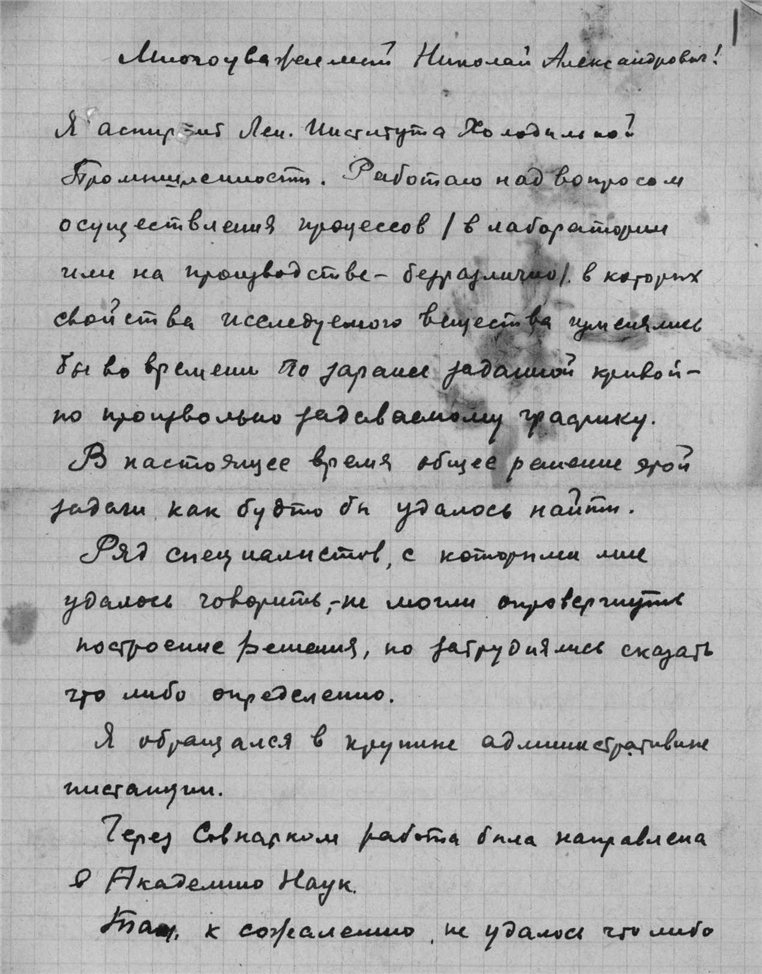 Многоуважаемый Николай Александрович!
Я аспирант Лен. Института Холодильной
Промышленности. Работаю над вопросом
осуществления процессов / в лаборатории
или на производстве – безразлично/. в которых
свойства исследуемого вещества изменялись
бы во времени по заранее заданной кривой –
по произвольно задаваемому графику.
В настоящее время общее решение этой
задачи как будто бы удалось найти.
Ряд специалистов, с которыми мне
удалось говорить, – не могли опровергнуть
построение решения, но затруднялись сказать
что либо определенно.
Я обращался в крупные административные
инстанции.
Через Совнарком работа была направлена
в Академию Наук.
Там, к сожалению, не удалось что либо